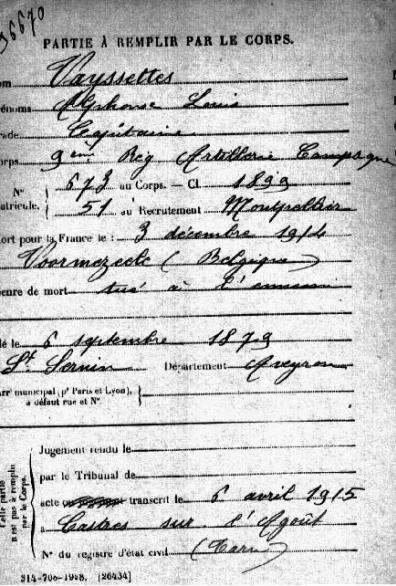 36670
PARTIE À REMPLIR PAR LE CORPS.
om Vayssettes
énoms Alphonse Louis
ade Capitaine
orps 9eme Rég Artillerie Campagne
N° 673 au Corps. — Cl. 1899
atricule. 51 au Recrutement Montpellier
ort pour la France le : 3 décembre 1914
Voormezeele (Belgique)
enre de mort tué à l'ennemi
é le 6 septembre 1879
St Sernin Département Aveyron
arrt municipal (pr Paris et Lyon),
à défaut rue et N°.
Cette partie
n'est pas à remplir
par le Corps.
Jugement rendu le
par le Tribunal de
acte transcrit le 6 avril 1915
à Castres sur l'Agoût
N° du registre d'état civil (Tarn)
314-708-1928. [26434]